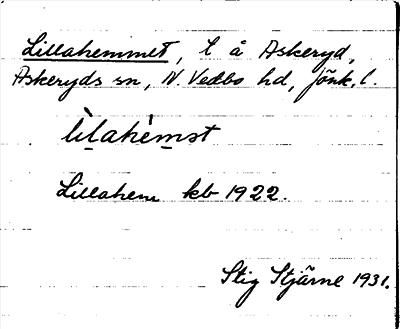 Lillahemmet, l. å Askeryd,
Askeryds sn, N. Vedbo hd, Jönk. l.
lìlahèmst
Lillahem kb 1922.
Stig Stjärne 1931.